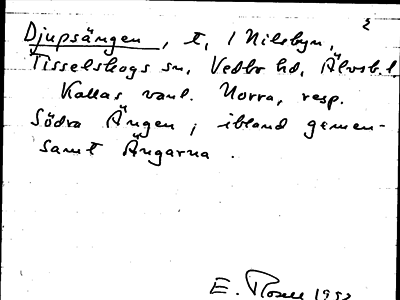 Djupsängen, t, i Nilsbyn,
Tisselskogs sn, Vedbo hd, Älvsb. l
Kallas vanl. Norra, resp.
Södra Ängen; ibland gemen-
samt Ängarna.
E. Rosell